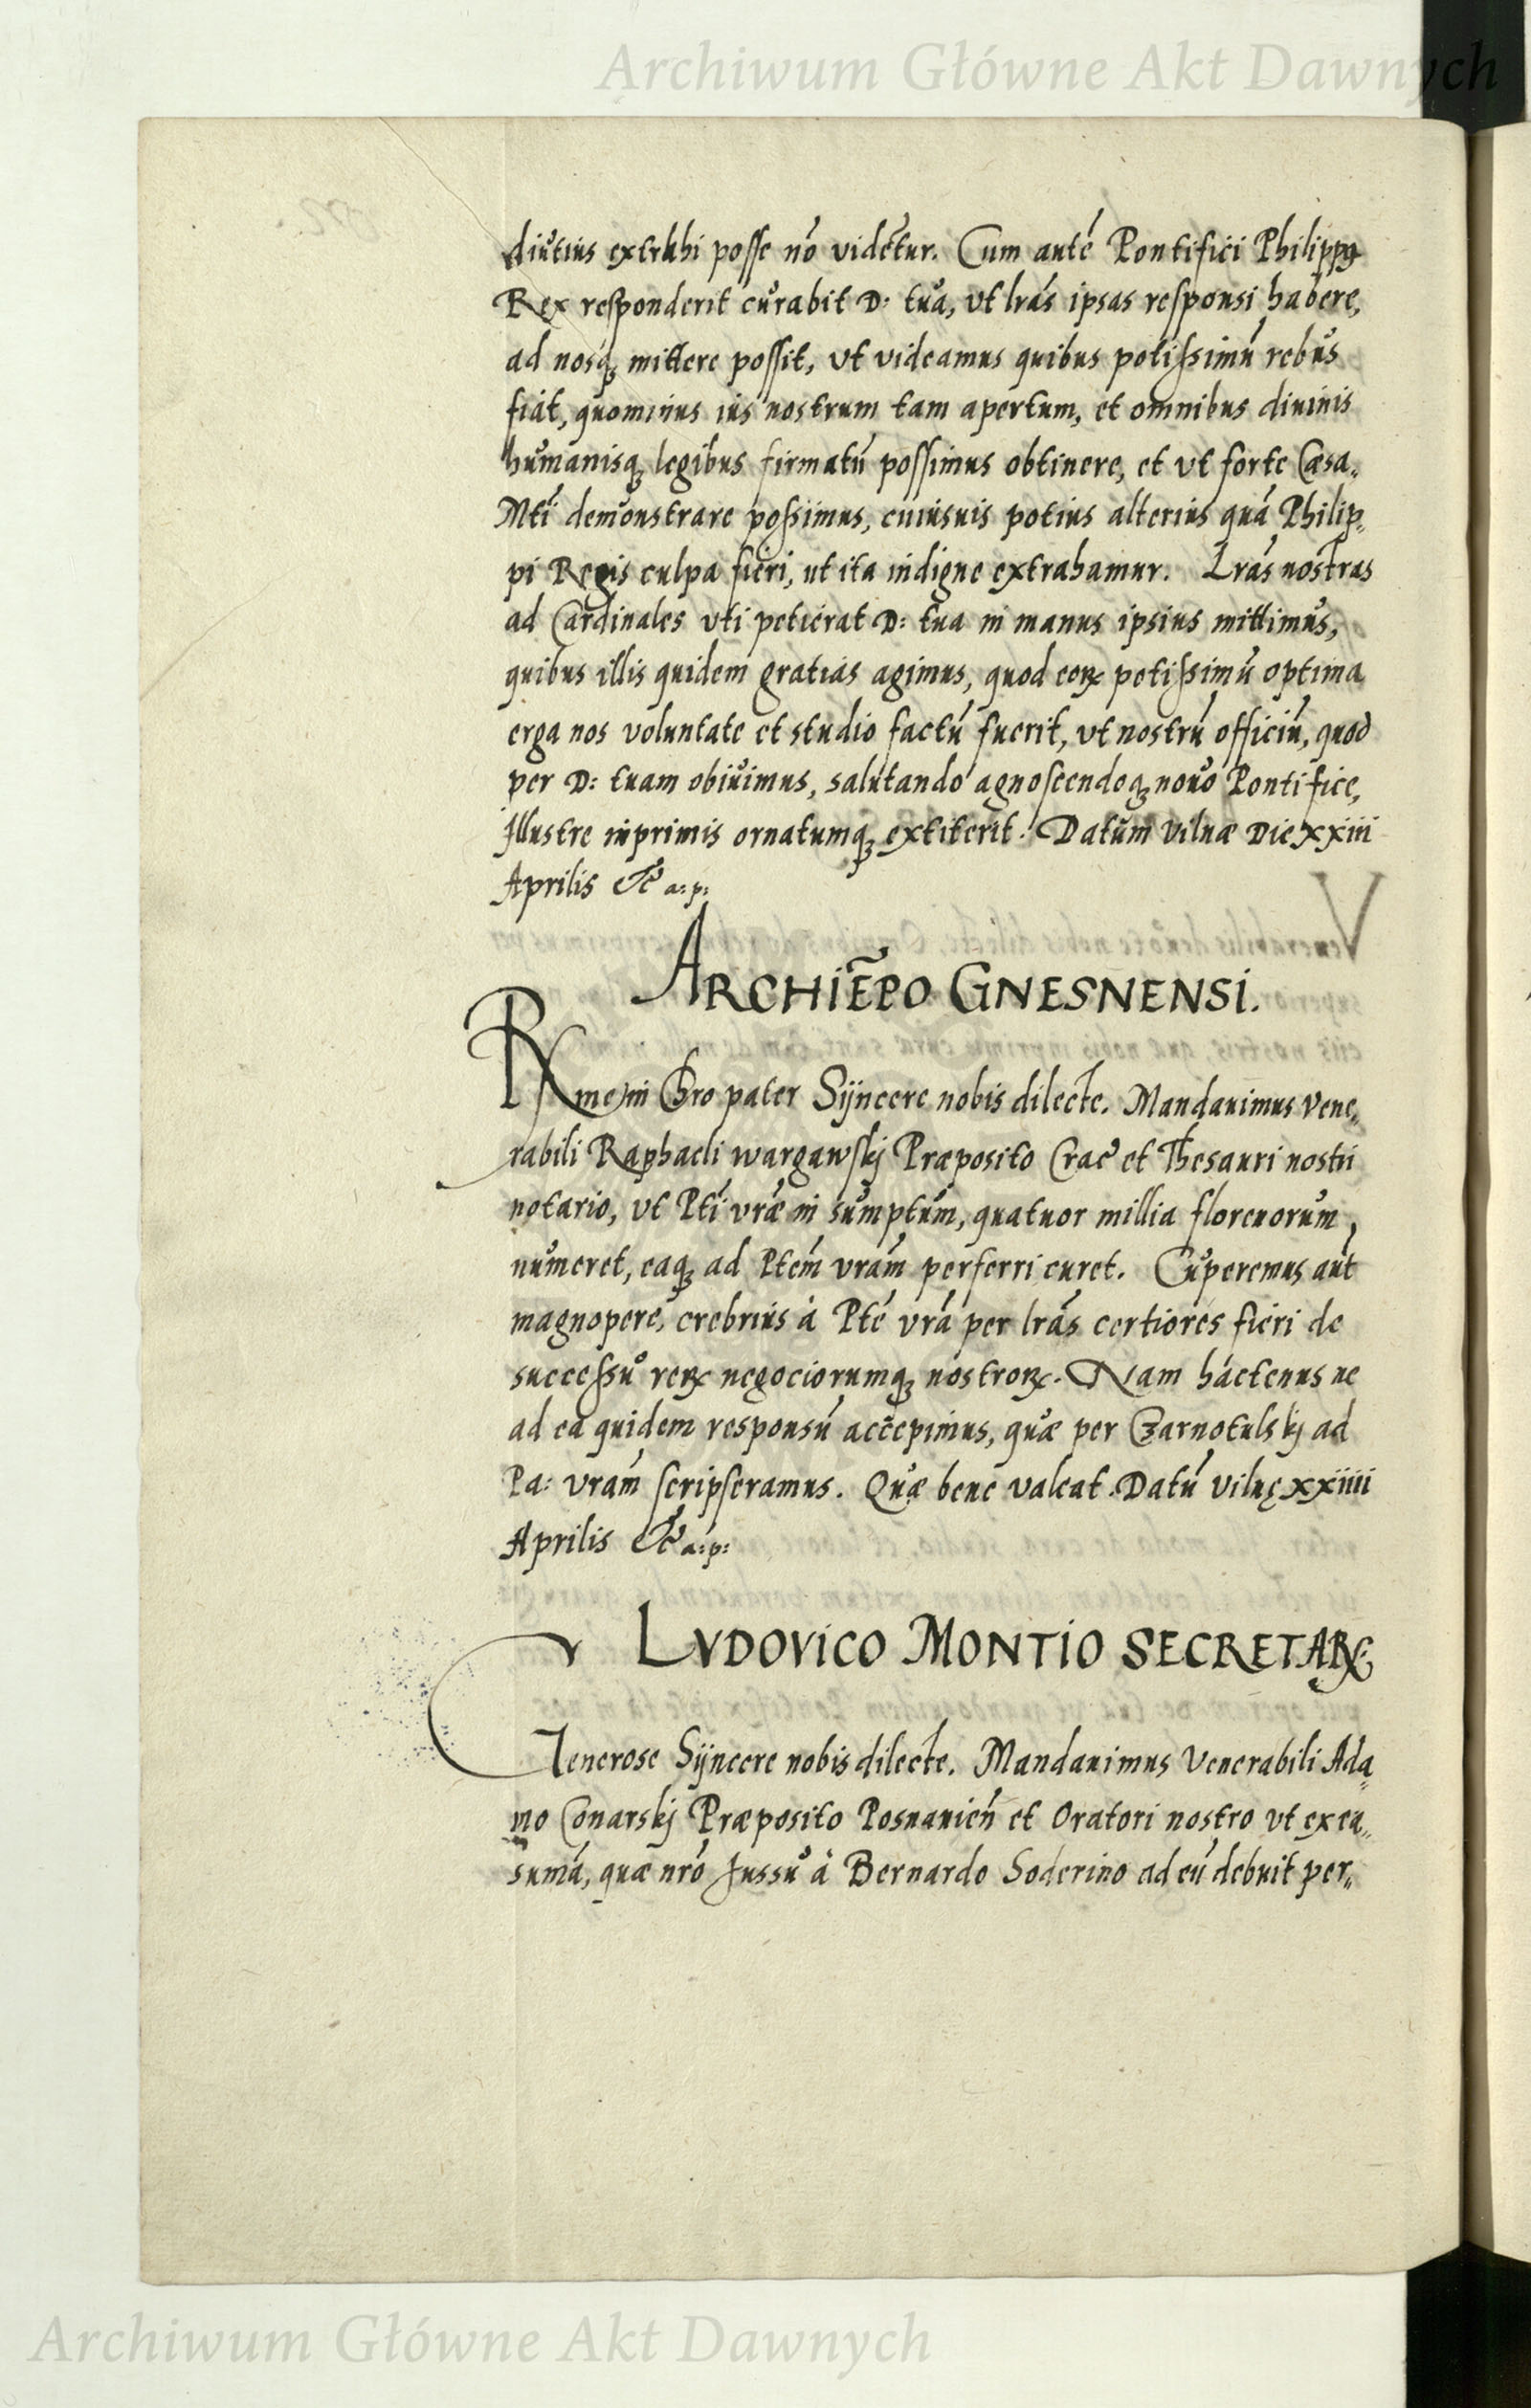 Archiwum Główne Akt Dawnych
diutius extrahi posse nõ videtur. Cum autẽ Pontifici Philippꝰ
Rex responderit curabit D: tua, vt lrãs ipsas responsi habere,
ad nosqꝫ mittere possit, vt videamus quibus potissimũ rebus
fiat, quominus ius nostrum tam apertum, et omnibus diuinis
humanisqꝫ legibus firmatũ possimus obtinere, et vt forte Cæsa„
Mti demonstrare possimus, cuiusuis potius alterius quã Philip„
pi Regis culpa fieri, ut ita indigne extrahamur. Lrãs nostras
ad Cardinales vti petierat D: tua in manus ipsius mittimus,
quibus illis quidem gratias agimus, quod eoꝝ potissimũ optima
erga nos voluntate et studio factũ fuerit, vt nostrũ officiũ, quod
per D: tuam obiuimus, salutando agnoscendoqꝫ nouo Pontifice,
Illustre inprimis ornatumqꝫ extiterit. Datum Vilnæ Die xxiii
Aprilis &c̃ a: p:
ARCHIEPO GNESNENSI.
Rme in Chro pater Syncere nobis dilecte. Mandauimus Vene„
rabili Raphaeli wargawskj Præposito Crac̃ et Thesauri nostri
notario, vt Pti vræ in sumptum, quatuor millia florenorum,
numeret, eaqꝫ ad Ptem vram perferri curet. Cuperemus aut
magnopere, crebrius à Pte vra per lrãs certiores fieri de
successu reꝝ negociorumqꝫ nostroꝝ. Nam hactenus ne
ad ea quidem responsũ accepimus, quæ per Czarnotulskj ad
Pa: vram scripseramus. Quæ bene valeat. Datũ Vilnę xxiiii
Aprilis &c̃ a: p:
LVDOVICO MONTIO SECRETARꝝ:
Generose Syncere nobis dilecte. Mandauimus Venerabili Ada„
mo Conarskj Præposito Posnanieñ et Oratori nostro vt ex ea„
sumã, quæ nrõ Jussu à Bernardo Soderino ad eũ debuit per„
Archiwum Główne Akt Dawnych